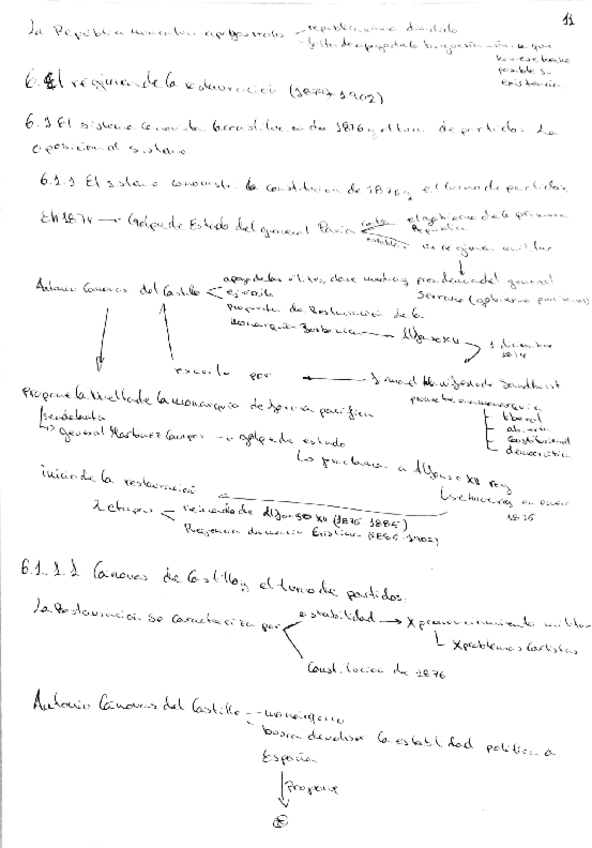 11
La República
republicanismo dividido
falta de apoyo de la burguesía
posible su
existencia
6. El régimen de la restauración (1874-1902)
6.1 El sistema la constitución de 1876 y el turno de partidos. La
oposición al sistema
6.1.1 El sistema la constitución de 1876 y el turno de partidos
En 1874 → Golpe de Estado del general Pavía
contra el gobierno de la primera
República
establece un régimen militar
Antonio Cánovas del Castillo
apoyo de las élites, clase media y presidencia del general
ejército
Serrano (gobierno
propuesta de Restauración de la
monarquía Borbónica → Alfonso XII
1 diciembre
1874
escrito por ← Manifiesto Sandhurst
Propone la vuelta de la monarquía de forma pacífica
monarquía
liberal
abierta
constitucional
democrática
se adelanta
general Martínez Campos → golpe de estado
proclaman a Alfonso XII rey
se hace rey en enero
1875
inicio de la restauración
2 etapas
reinado de Alfonso XII (1875-1885)
Regencia de María Cristina (1885-1902)
6.1.1.1 Cánovas de Castillo y el turno de partidos.
La Restauración se caracteriza por
estabilidad → X pronunciamiento militar
X problemas carlistas
Constitución de 1876
Antonio Cánovas del Castillo
monárquico
busca devolver la estabilidad política a
España
Propone